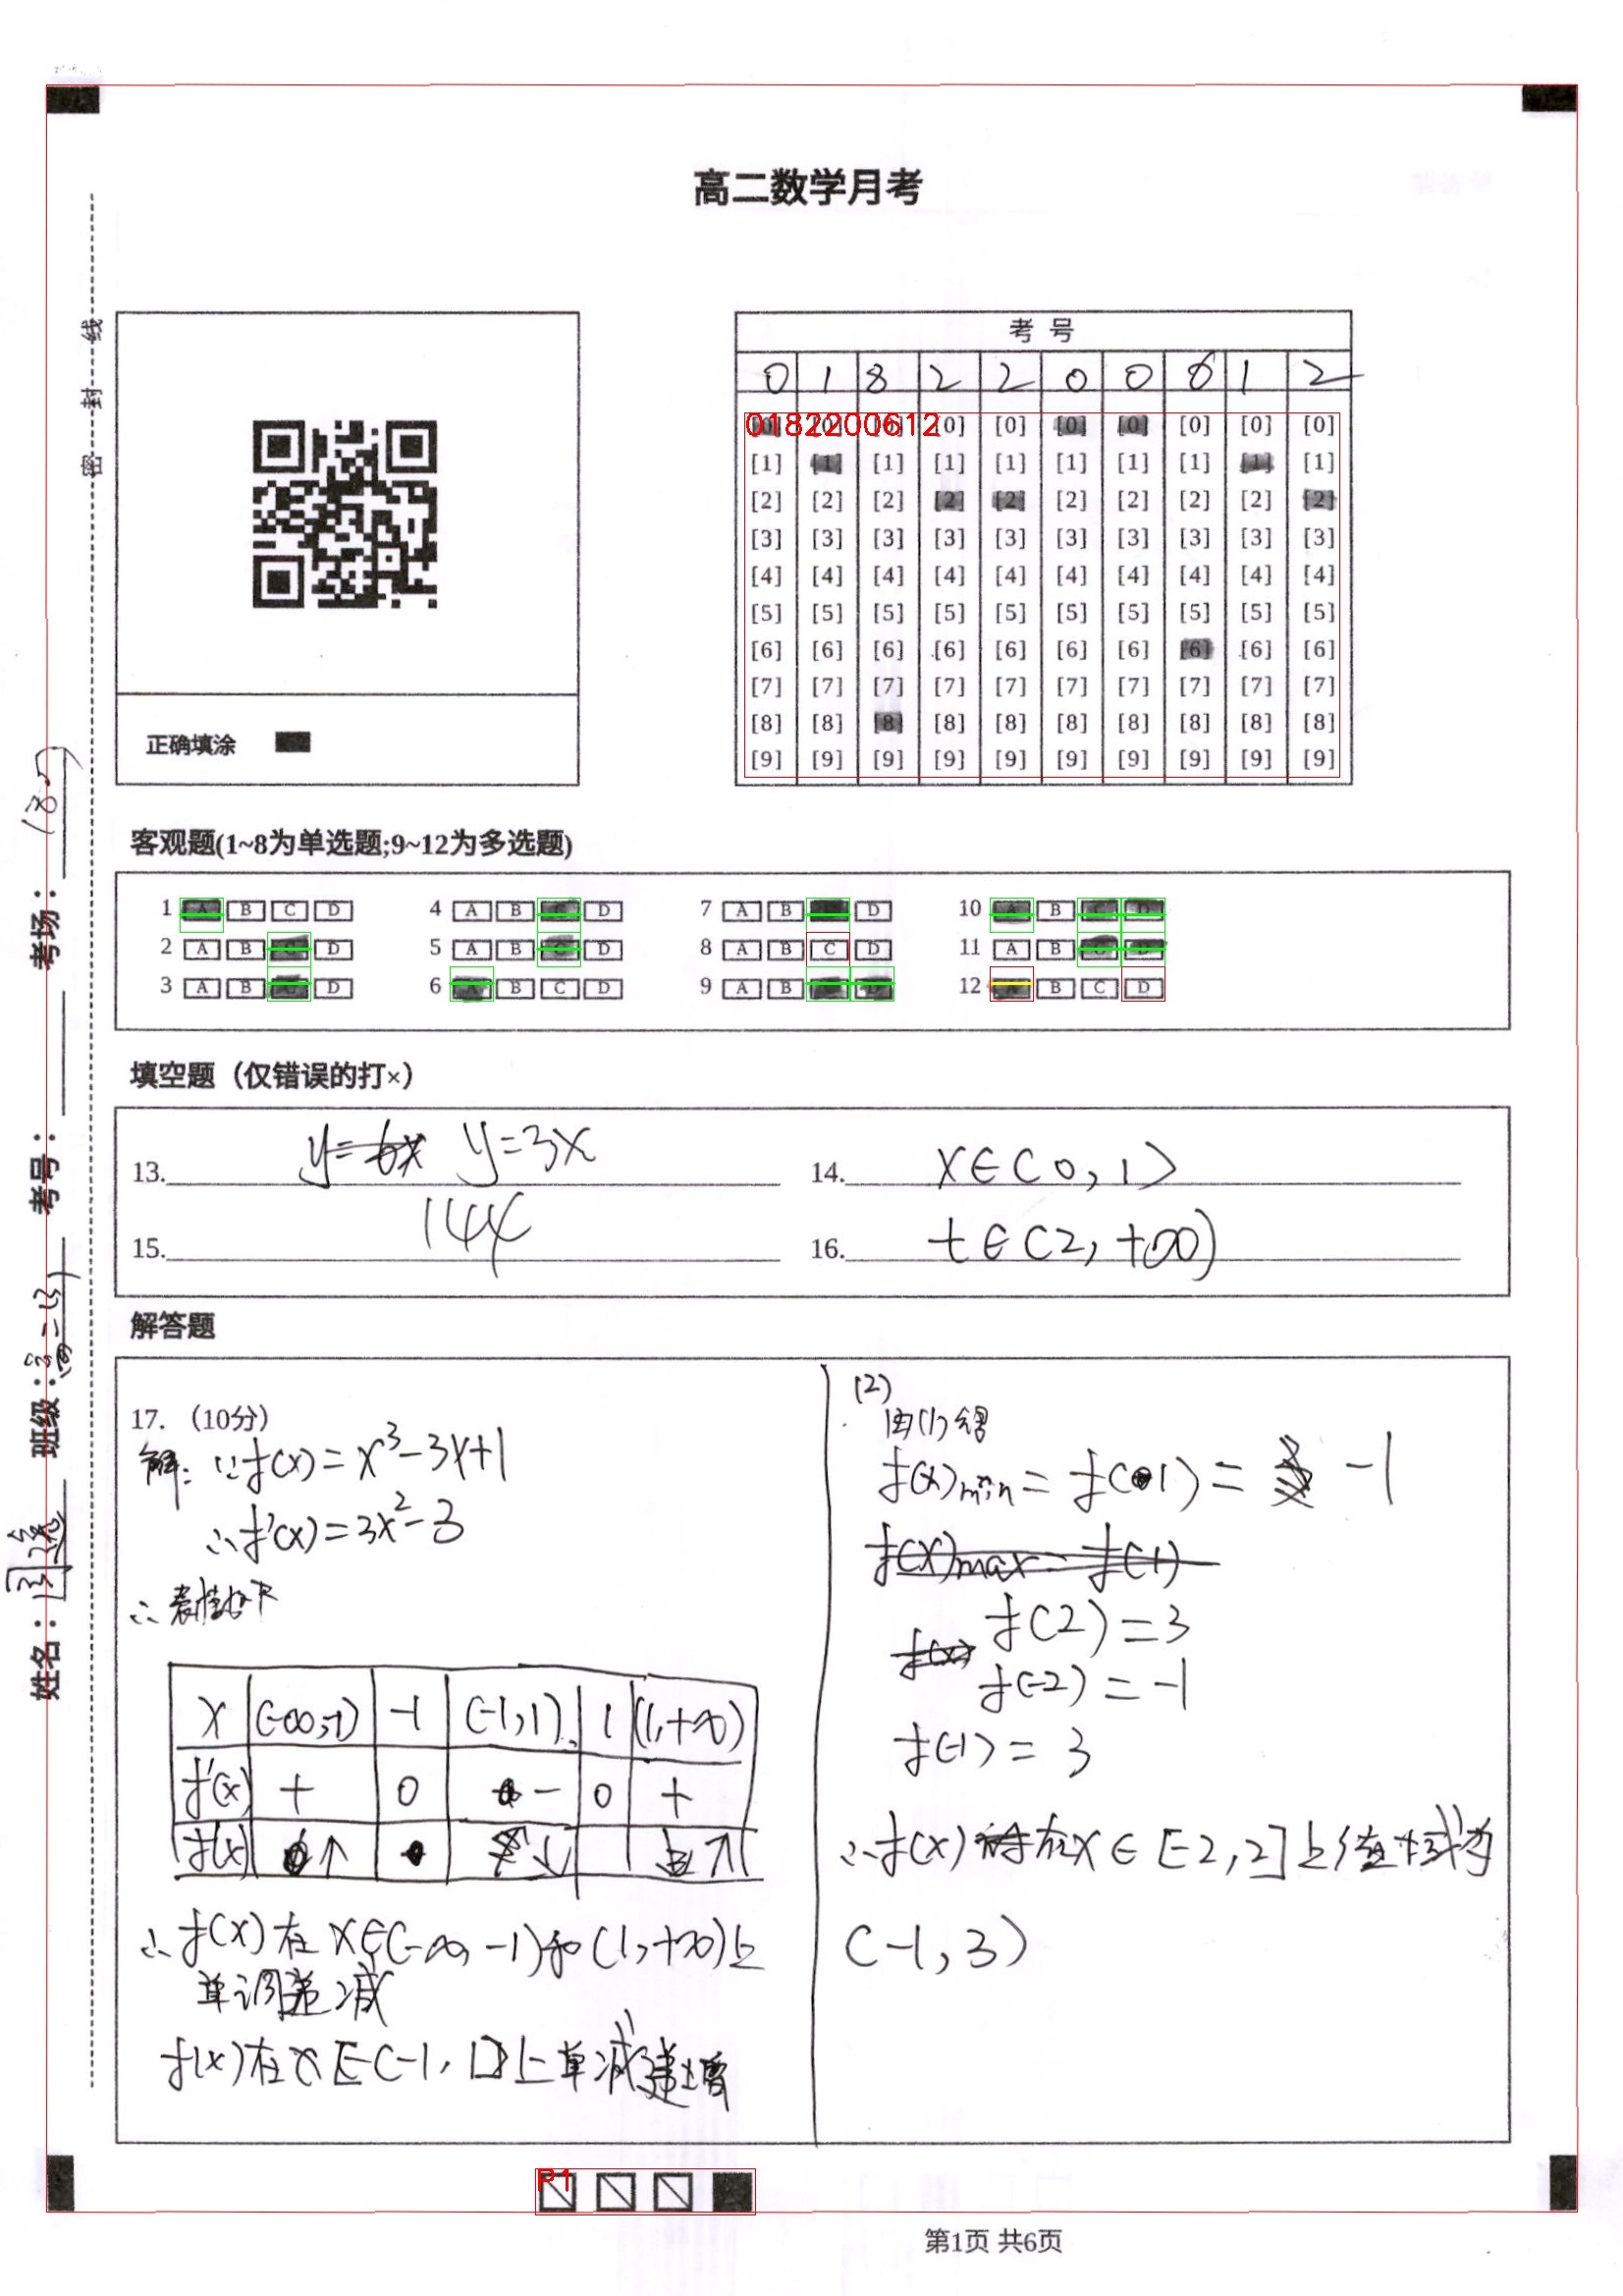 高二数学月考
考 号
0 1 8 2 2 0 0 6 1 2
0182200612
[0] [0] [0] [0] [0] [0] [0] [0] [0] [0]
[1] [1] [1] [1] [1] [1] [1] [1] [1] [1]
[2] [2] [2] [2] [2] [2] [2] [2] [2] [2]
[3] [3] [3] [3] [3] [3] [3] [3] [3] [3]
[4] [4] [4] [4] [4] [4] [4] [4] [4] [4]
[5] [5] [5] [5] [5] [5] [5] [5] [5] [5]
[6] [6] [6] [6] [6] [6] [6] [6] [6] [6]
[7] [7] [7] [7] [7] [7] [7] [7] [7] [7]
[8] [8] [8] [8] [8] [8] [8] [8] [8] [8]
[9] [9] [9] [9] [9] [9] [9] [9] [9] [9]
正确填涂
密 封 线
姓名： 班级： 考号： 考场：
客观题(1~8为单选题;9~12为多选题)
1 A B C D 4 A B C D 7 A B C D 10 A B C D
2 A B C D 5 A B C D 8 A B C D 11 A B C D
3 A B C D 6 A B C D 9 A B C D 12 A B C D
填空题（仅错误的打×）
13. y=3x 14. x∈(0,1)
15. 144 16. t∈(2,+∞)
解答题
17. （10分）
解: ∵f(x)=x³-3x+1
∴f'(x)=3x²-3
∴表格如下
x (-∞,-1) -1 (-1,1) 1 (1,+∞)
f'(x) + 0 - 0 +
f(x) ↑ ↓ ↑
∴f(x)在x∈(-∞,-1)和(1,+∞)上
单调递减
f(x)在x∈(-1,1)上单减递增
(2)
由(1)得
f(x)min = f(1) = -1
f(x)max = f(1)
f(2)=3
f(-2)=-1
f(-1)=3
∴f(x)在x∈[-2,2]上值域为
(-1,3)
P1
第1页 共6页